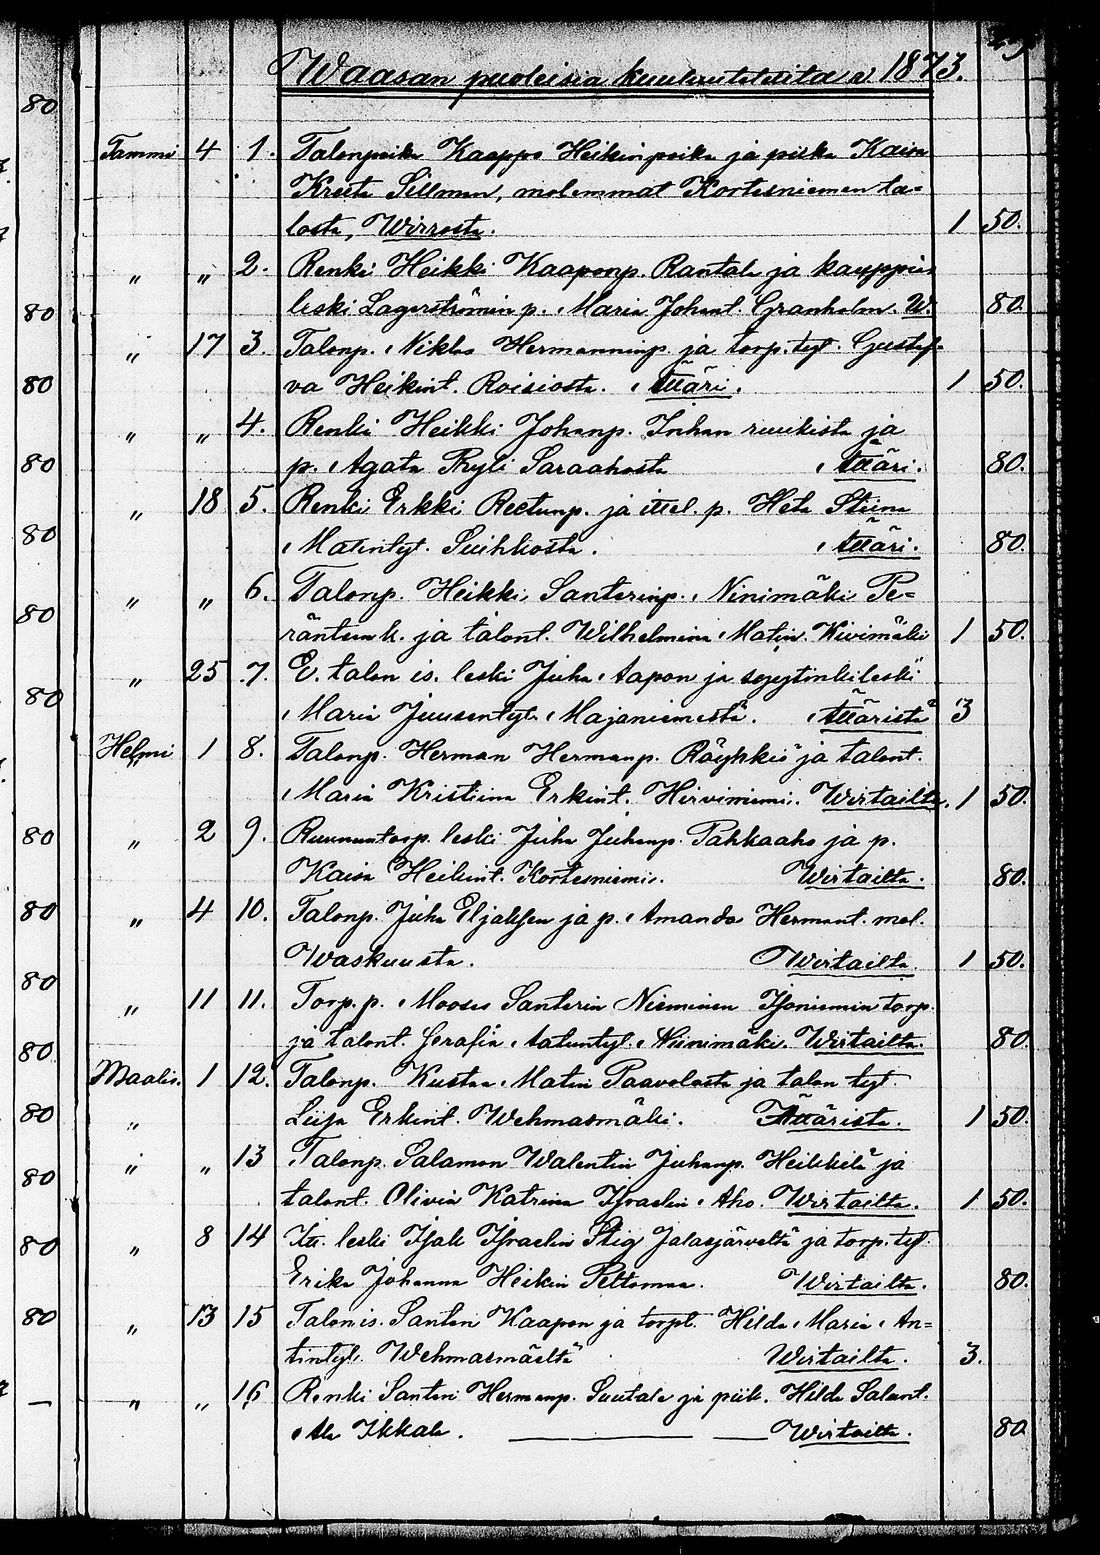 Waasan puoleisia kuulutuksia v. 1873.
Tammi 4 1. Talonpoika Kaappo Heikinpoika ja piika Kaisa
Kreeta Sillman, molemmat Kortesniemen ta=
losta, Wirroista. 1 50.
" " 2. Renki Heikki Kaaponp. Rantala ja kauppias
leski Lagerströmin p. Maria Johant. Granholm. W. 80.
" 17 3. Talonp. Niklas Hermanninp. ja torp. tyt. Gusta
va Heikint. Roisiosta. Ätäri. 1 50.
" " 4. Renki Heikki Johanp. Inhan ruukista ja
p. Agata Ryli Saraahosta Ätäri. 80.
" 18 5. Renki Erkki Reetunp. ja itsel. p. Heta Stiina
Matintyt. Suihkosta. Ätäri. 80.
" " 6. Talonp. Heikki Santerinp. Ninimäki Pe=
räntemk. ja talont. Wilhelmina Matin. Kivimäki 1 50.
" 25 7. E. talon is. leski Juha Aapon ja syytinkileski
Maria Juusentyt. Majaniemestä. Ätäristä 3
Helmi 1 8. Talonp. Herman Hermanp. Röyhkiö ja talont.
Maria Kristiina Erkint. Hirviniemi. Wirtailta. 1 50.
" 2 9. Ruununtorp. leski Juha Juhanp. Pahkaaho ja p.
Kaisa Heikint. Kortesniemi. Wirtailta. 80.
" 4 10. Talonp. Juha Eljaksen ja p. Amanda Hermant. mol.
Waskuusta. Wirtailta. 1 50.
" 11 11. Torp. p. Mooses Santerin Nieminen Isoniemen torp.
ja talont. Serafia Aatuntyt. Niinimäki. Wirtailta. 80.
Maalis. 1 12. Talonp. Kustaa Matin Paavolasta ja talon tyt.
" Liisa Erkint. Wehmasmäki. Ätäristä. 1 50.
" " 13 Talonp. Salamon Walentin Juhanp. Heikkilä ja
talont. Olivia Katrina Israelin Aho. Wirtailta. 1 50.
" 8 14 Its. leski Isak Israelin Stig Jalasjärveltä ja torp. tyt.
Erika Johanna Heikin Peltomaa. Wirtailta. 80.
" 13 15 Talon is. Santeri Kaapon ja torpt. Hilda Maria An=
tintyt. Wehmasmäeltä Wirtailta. 3.
" " 16 Renki Santeri Hermanp. Suutala ja piik. Hilda Salant.
Ala Ikkala. Wirtailta. 80